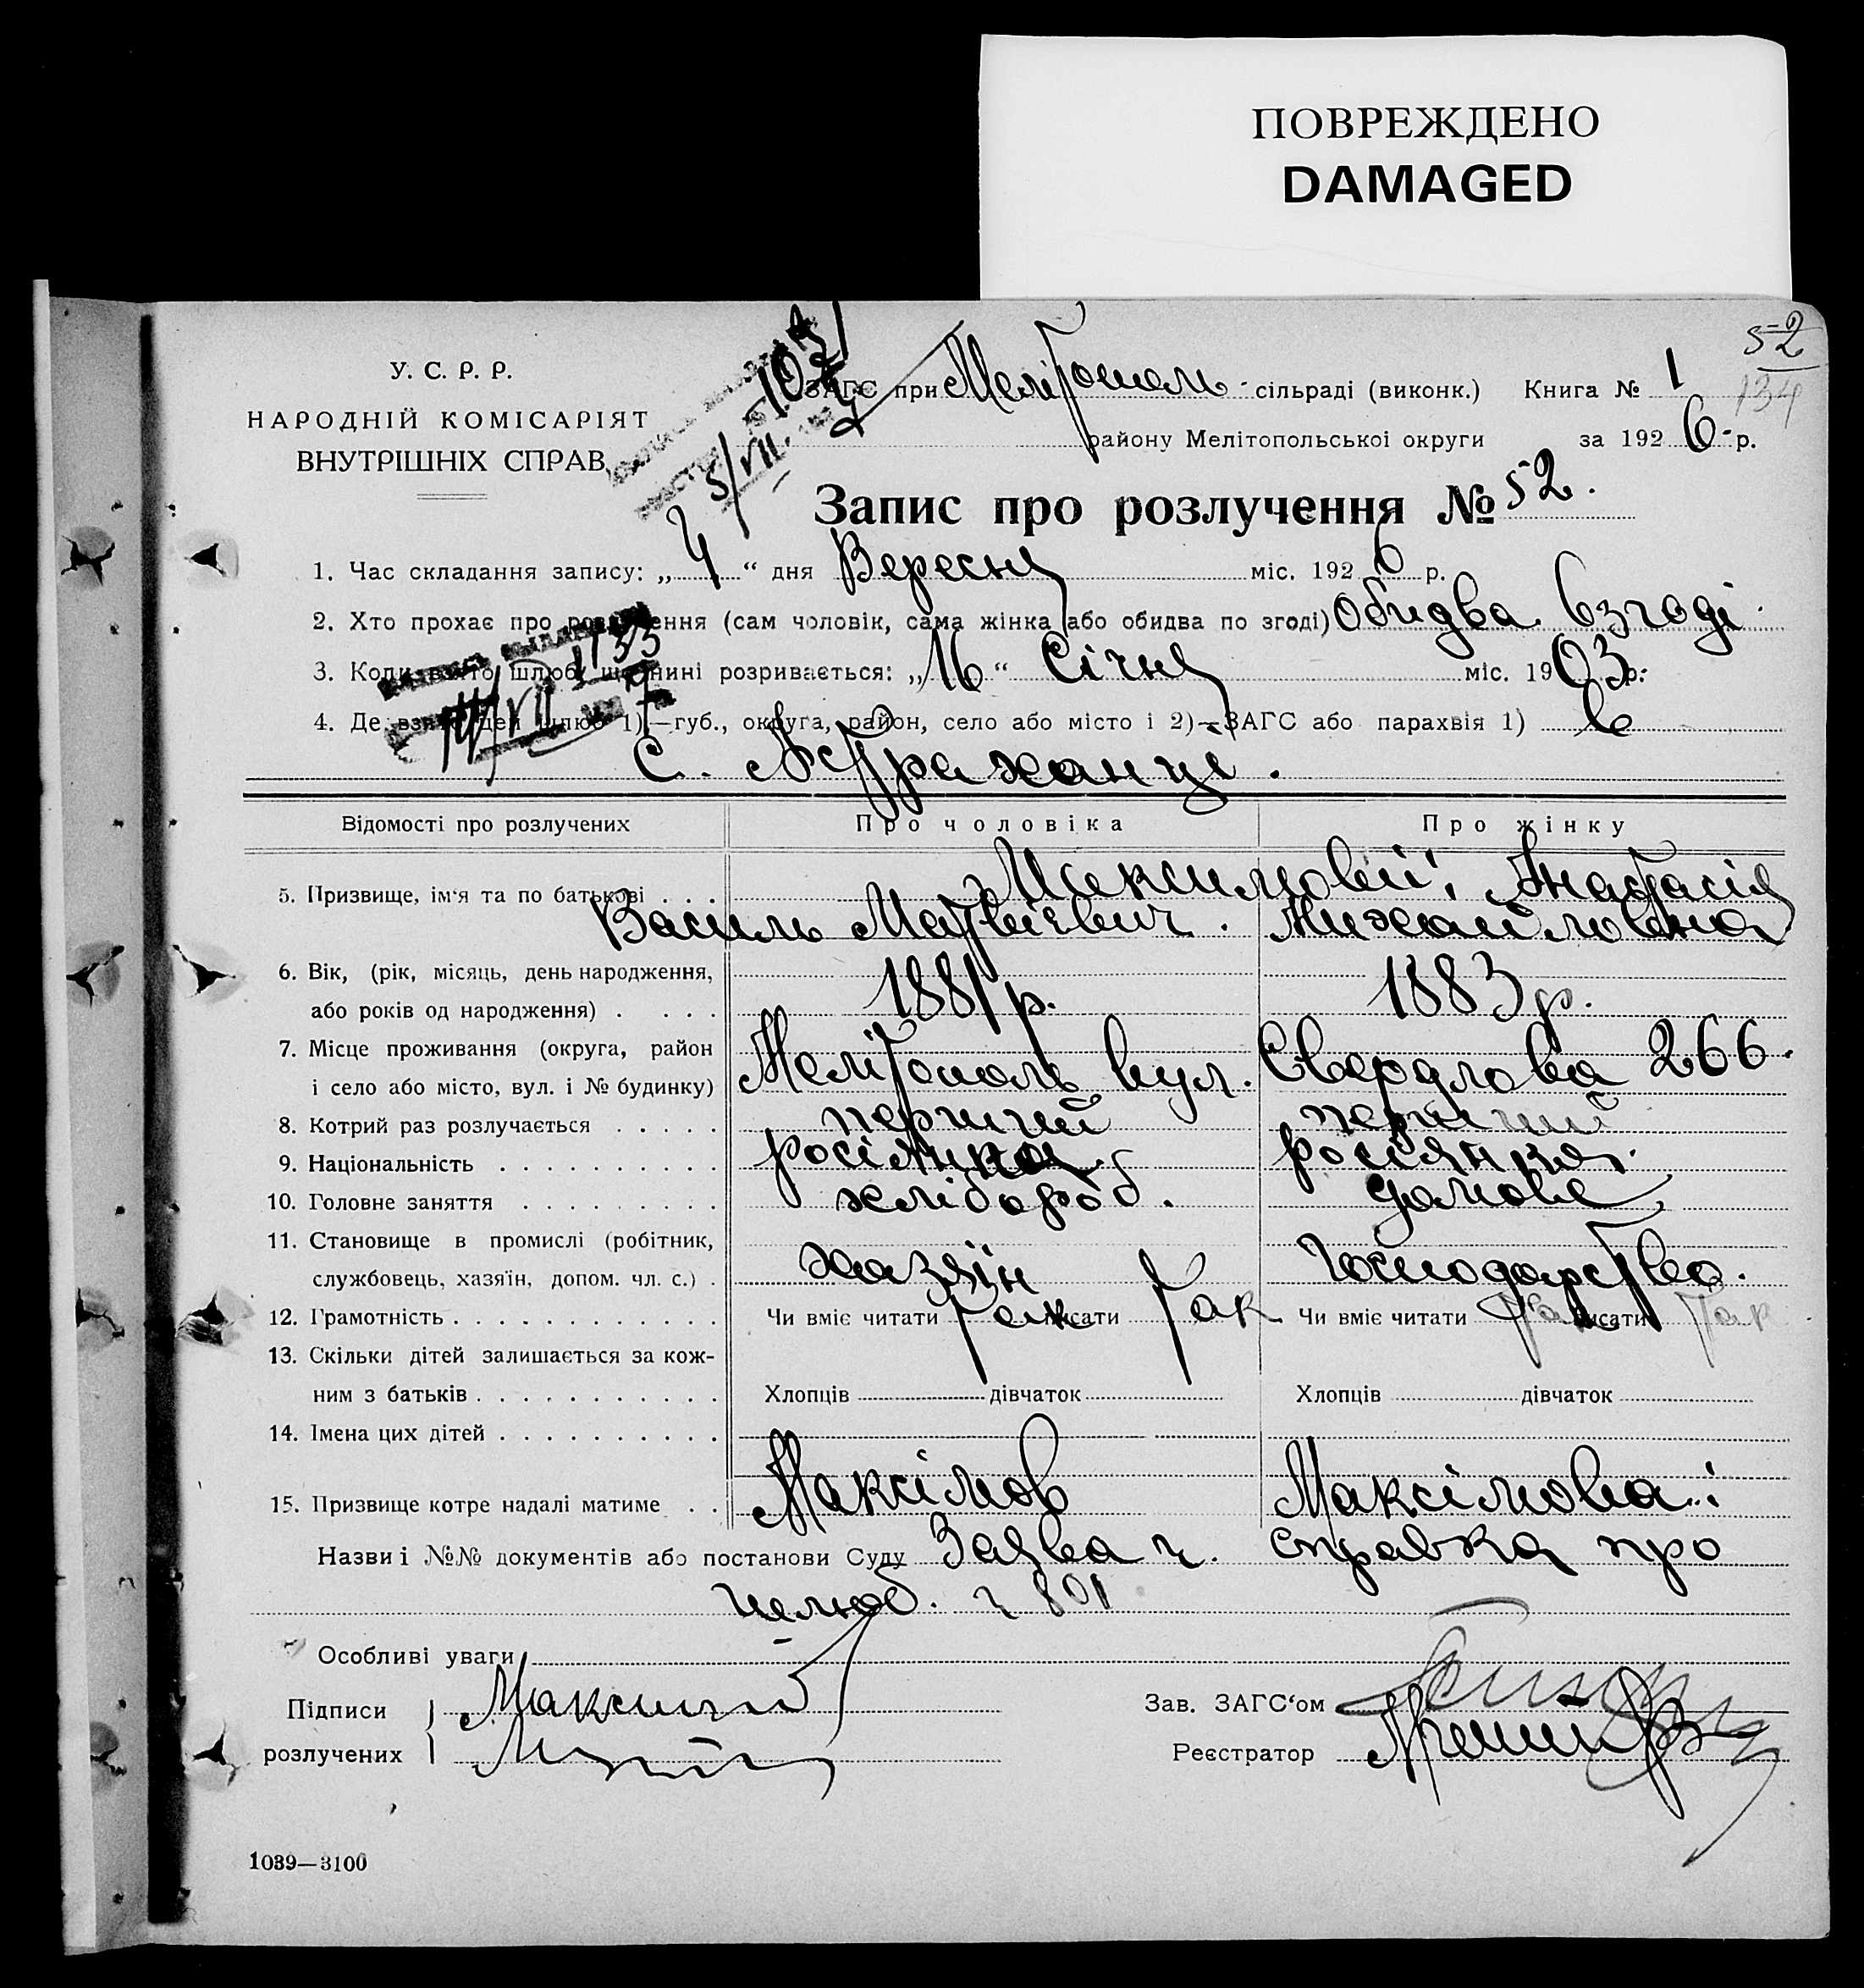 ПОВРЕЖДЕНО
DAMAGED
52
134
У. С. Р. Р.
НАРОДНІЙ КОМІСАРІЯТ
ВНУТРІШНІХ СПРАВ
ЗАГС при Мелітополь сільраді (виконк.) Книга № 1
району Мелітопольської округи за 1926 р.
Запис про розлучення № 52.
1. Час складання запису: „4“ дня Вересня міс. 1926 р.
2. Хто прохає про розлучення (сам чоловік, сама жінка або обидва по згоді) Обидва взгоді
3. Коли взято шлюб, що нині розривається: „16“ Січня міс. 1903 р.
4. Де взято цей шлюб 1)—губ., округа, район, село або місто і 2)—ЗАГС або парахвія 1) в
с. Астраханці.
Відомості про розлучених Про чоловіка Про жінку
5. Призвище, ім'я та по батькові . . . Максимови: Анастасія
Василь Матвієвич. Михайловна
6. Вік, (рік, місяць, день народження, 1881 р. 1883 р.
або років од народження) . . . .
7. Місце проживання (округа, район
і село або місто, вул. і № будинку) Мелітополь вул. Свердлова 266.
8. Котрий раз розлучається . . . . . перший перший
9. Національність . . . . . . . . . . росіянка росіянка.
10. Головне заняття . . . . . . . . . хлібороб. домове
11. Становище в промислі (робітник,
службовець, хазяїн, допом. чл. с.) . хазяїн господарство.
12. Грамотність . . . . . . . . . . . . Чи вміє читати так писати так Чи вміє читати так писати так
13. Скільки дітей залишається за кож-
ним з батьків . . . . . . . . . . . Хлопців дівчаток Хлопців дівчаток
14. Імена цих дітей . . . . . . . . . .
15. Призвище котре надалі матиме . . Максімов Максімова
Назви і №№ документів або постанови Суду Заява ч. справка про
шлюб. ч 801
Особливі уваги
Підписи
розлучених
Зав. ЗАГС‘ом
Реєстратор
1039—3100